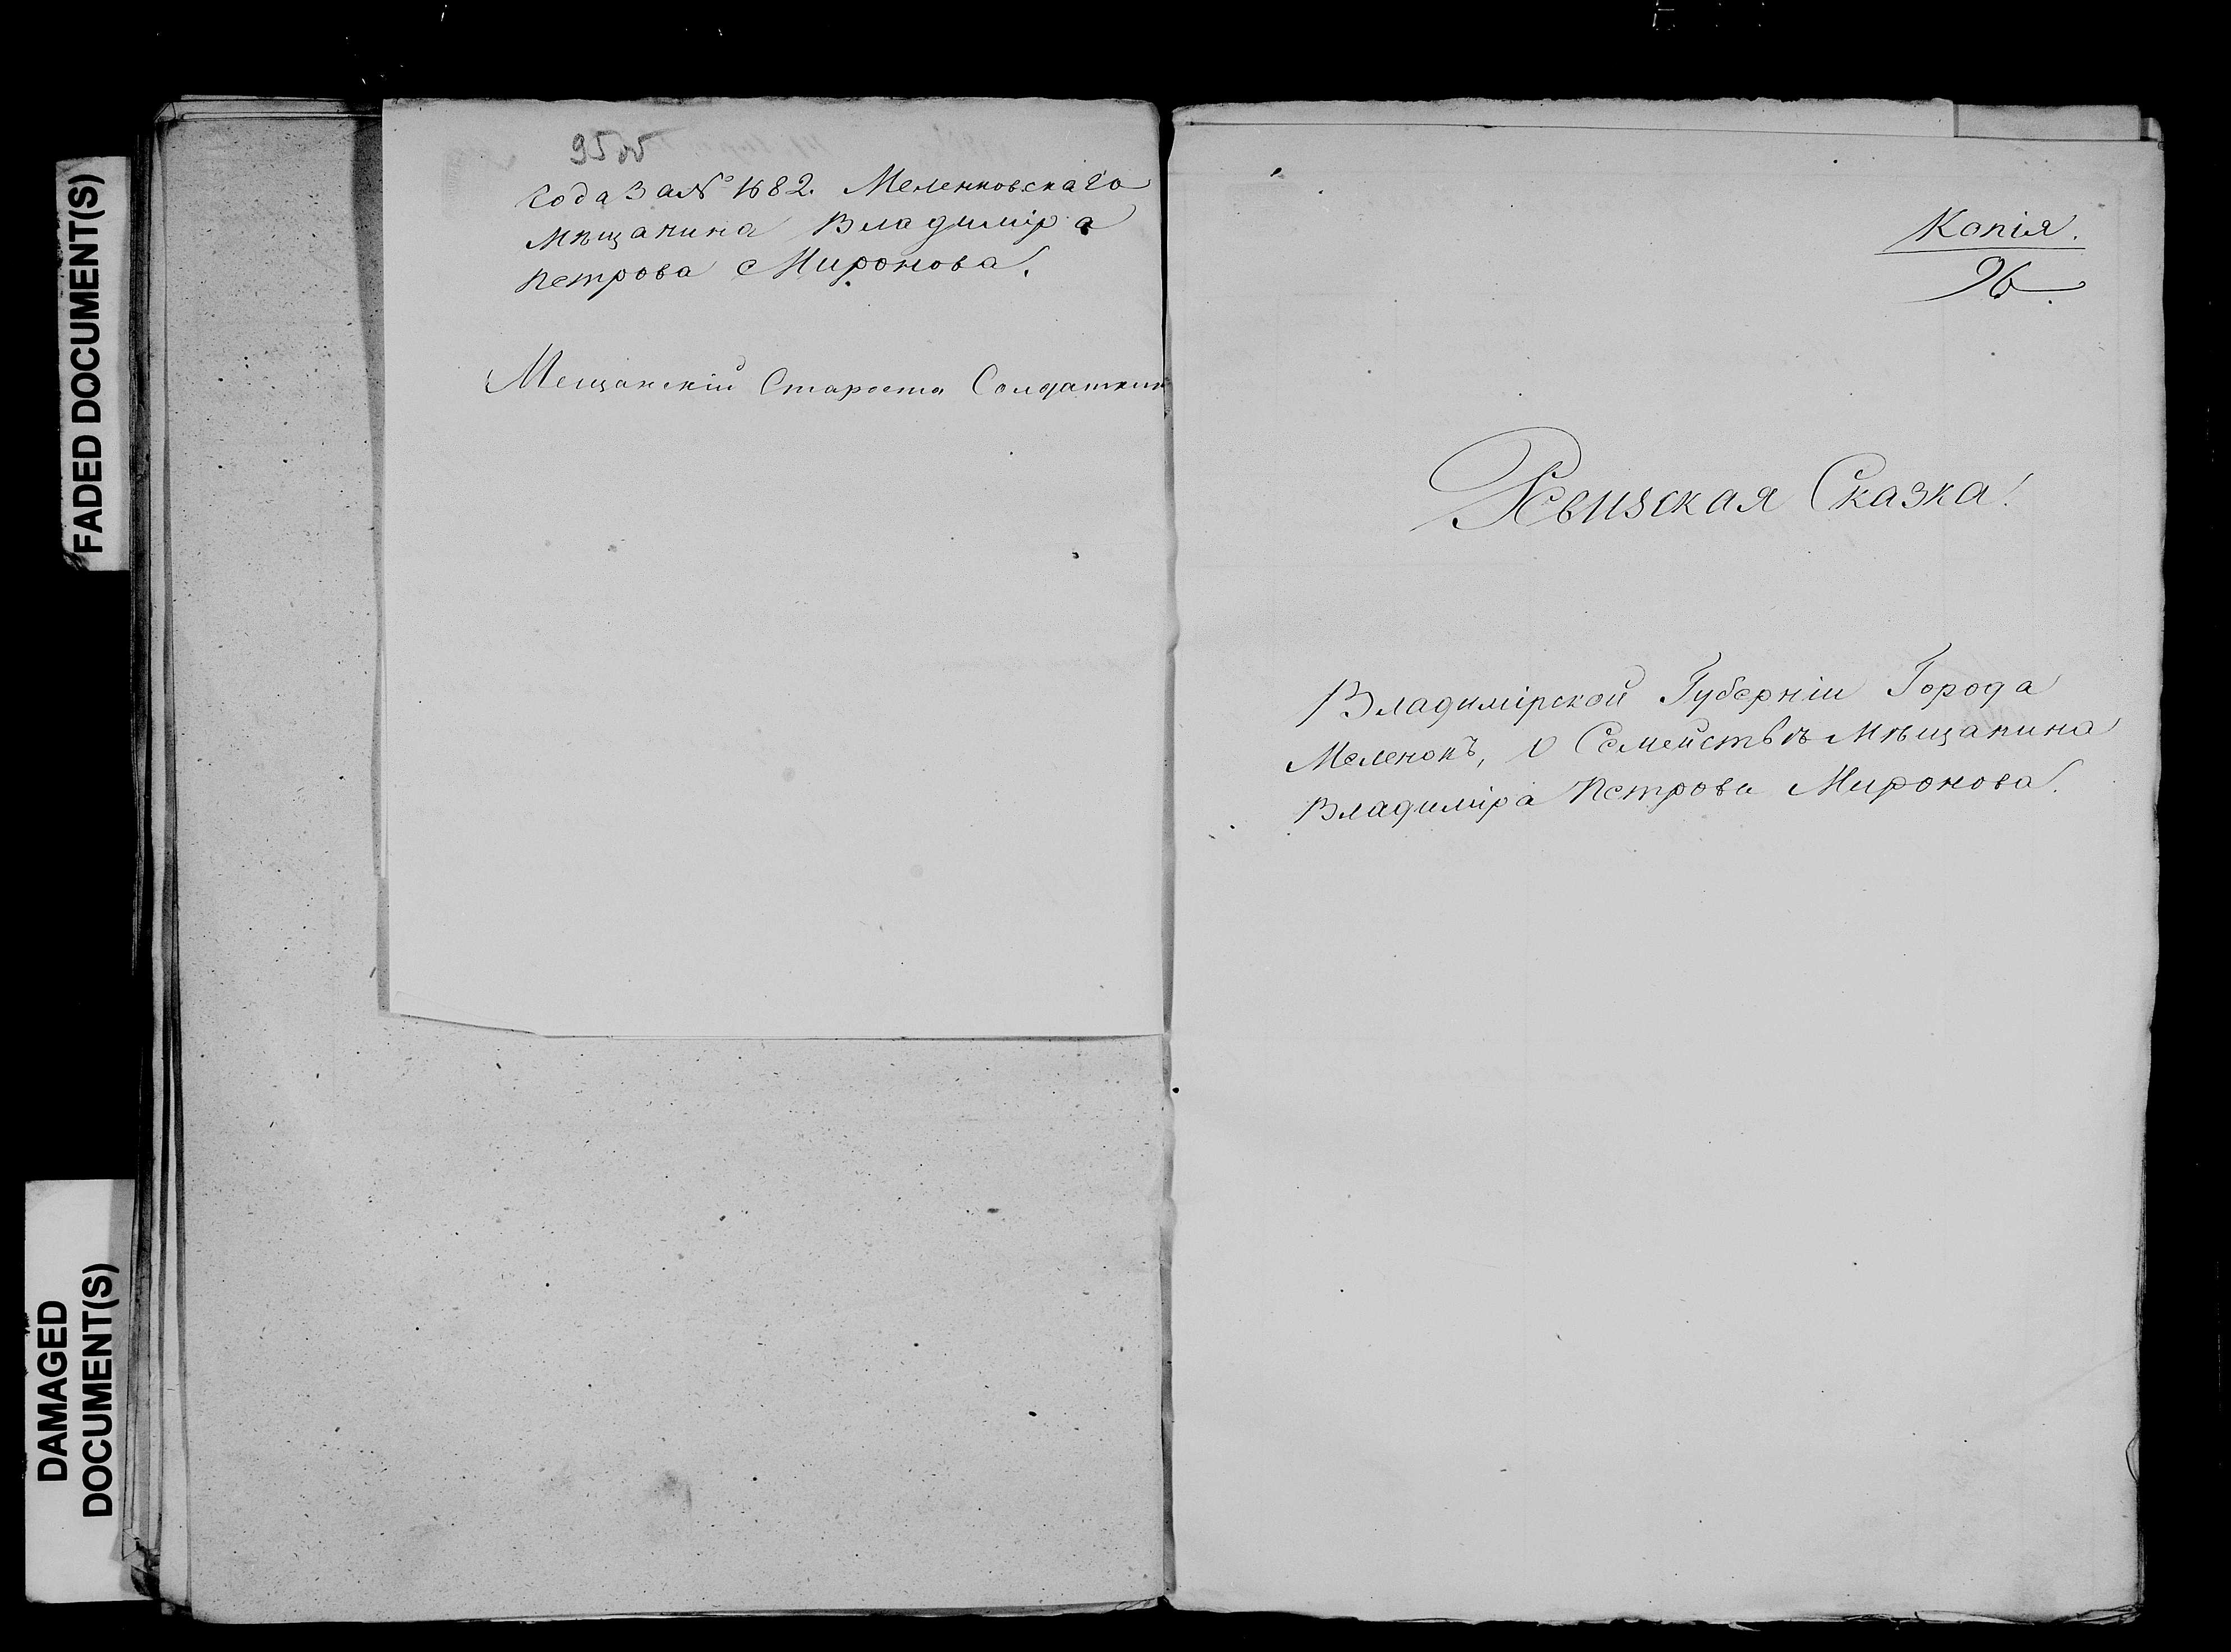 FADED DOCUMENT(S)
DAMAGED
DOCUMENT(S)
95об
года за № 1682. Меленковскаго
мѣщанина Владиміра
Петрова Миронова.
Мещанскій Староста Солдаткин
Копія.
96
Ревизская Сказка.
Владимірской Губерніи Города
Меленокъ, о Семействѣ мѣщанина
Владиміра Петрова Миронова.